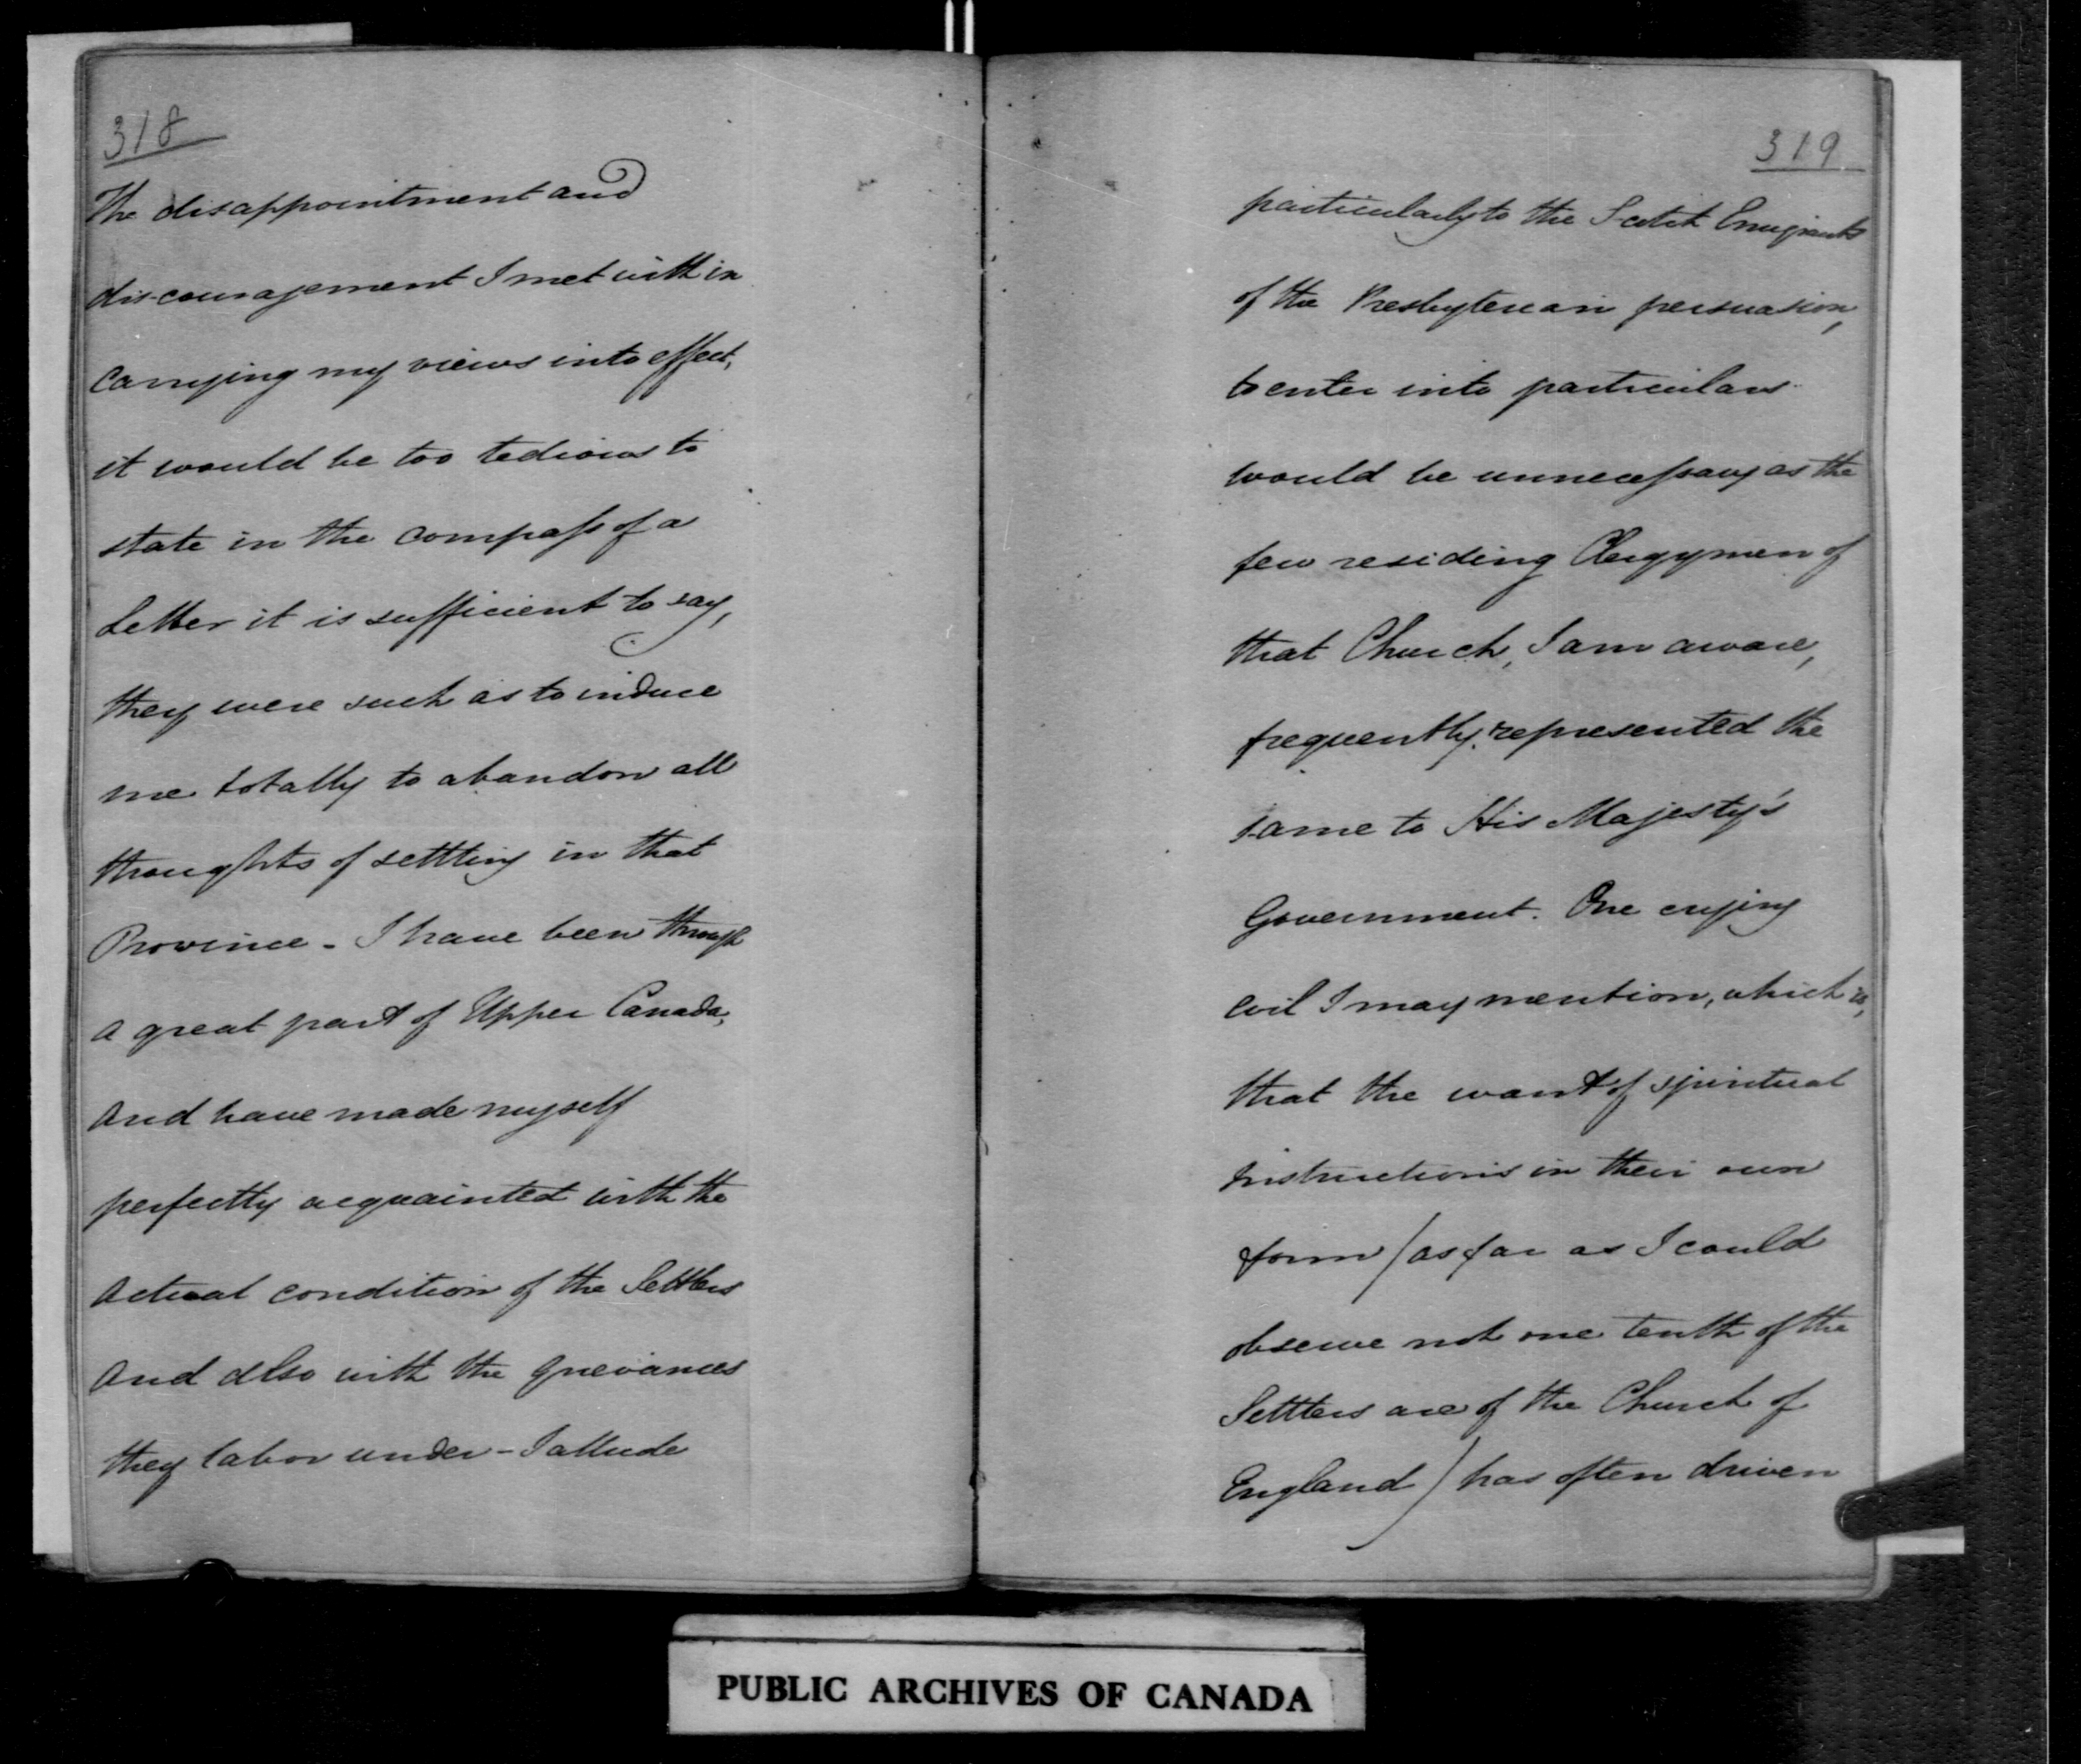 318
The disappointment and
discouragement I met with in
carrying my views into effect,
it would be too tedious to
state in the compass of a
Letter it is sufficient to say,
they were such as to induce
me totally to abandon all
thoughts of settling in that
Province - I have been through
a great part of Upper Canada,
and have made myself
perfectly acquainted with the
actual condition of the Settlers
and also with the grievances
they labor under - I allude
319
particularly to the Scotch Emigrants
of the Presbyterian persuasion,
to enter into particulars
would be unnecessary as the
few residing Clergymen of
that Church, I am aware,
frequently represented the
same to His Majesty's
Government. One crying
evil I may mention, which is,
that the want of spiritual
instructions in their own
form (as far as I could
observe not one tenth of the
Settlers are of the Church of
England) has often driven
PUBLIC ARCHIVES OF CANADA